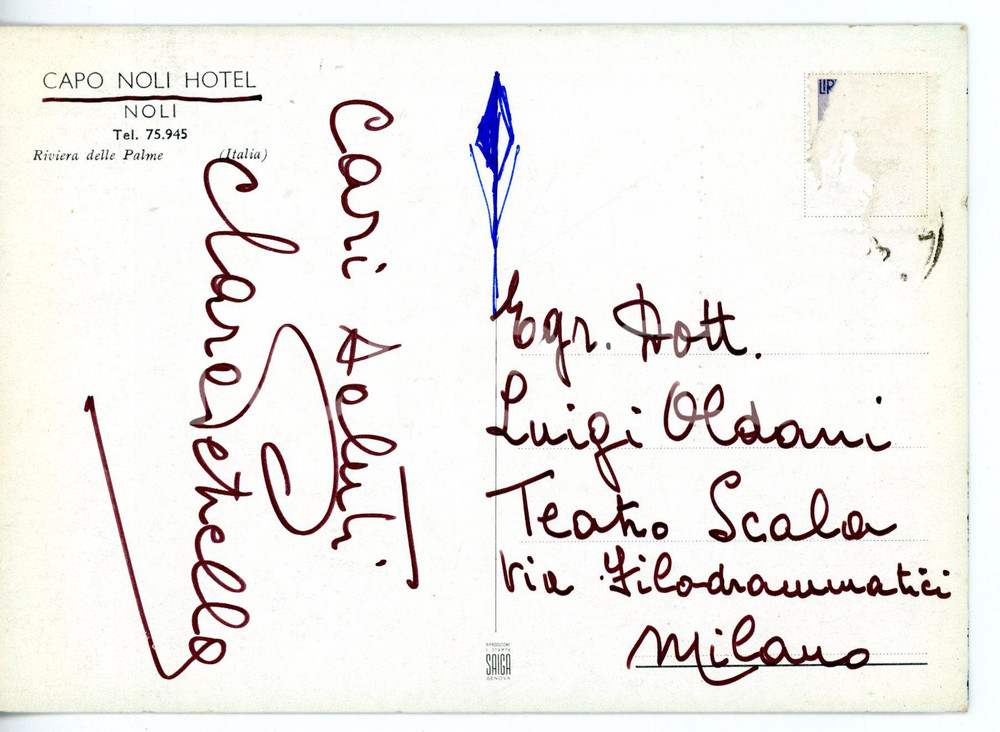 CAPO NOLI HOTEL
NOLI
Tel. 75.945
Riviera delle Palme (Italia)
Cari saluti
LIR
Egr. Dott.
Luigi Oldani
Teatro Scala
Via Filodrammatici
Milano
RIPRODUZIONE
E STAMPA
SAIGA
GENOVA